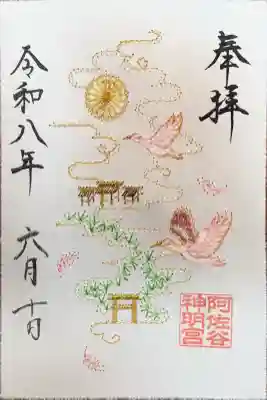 奉拝
令和八年 六月十日
阿佐谷
神明宮